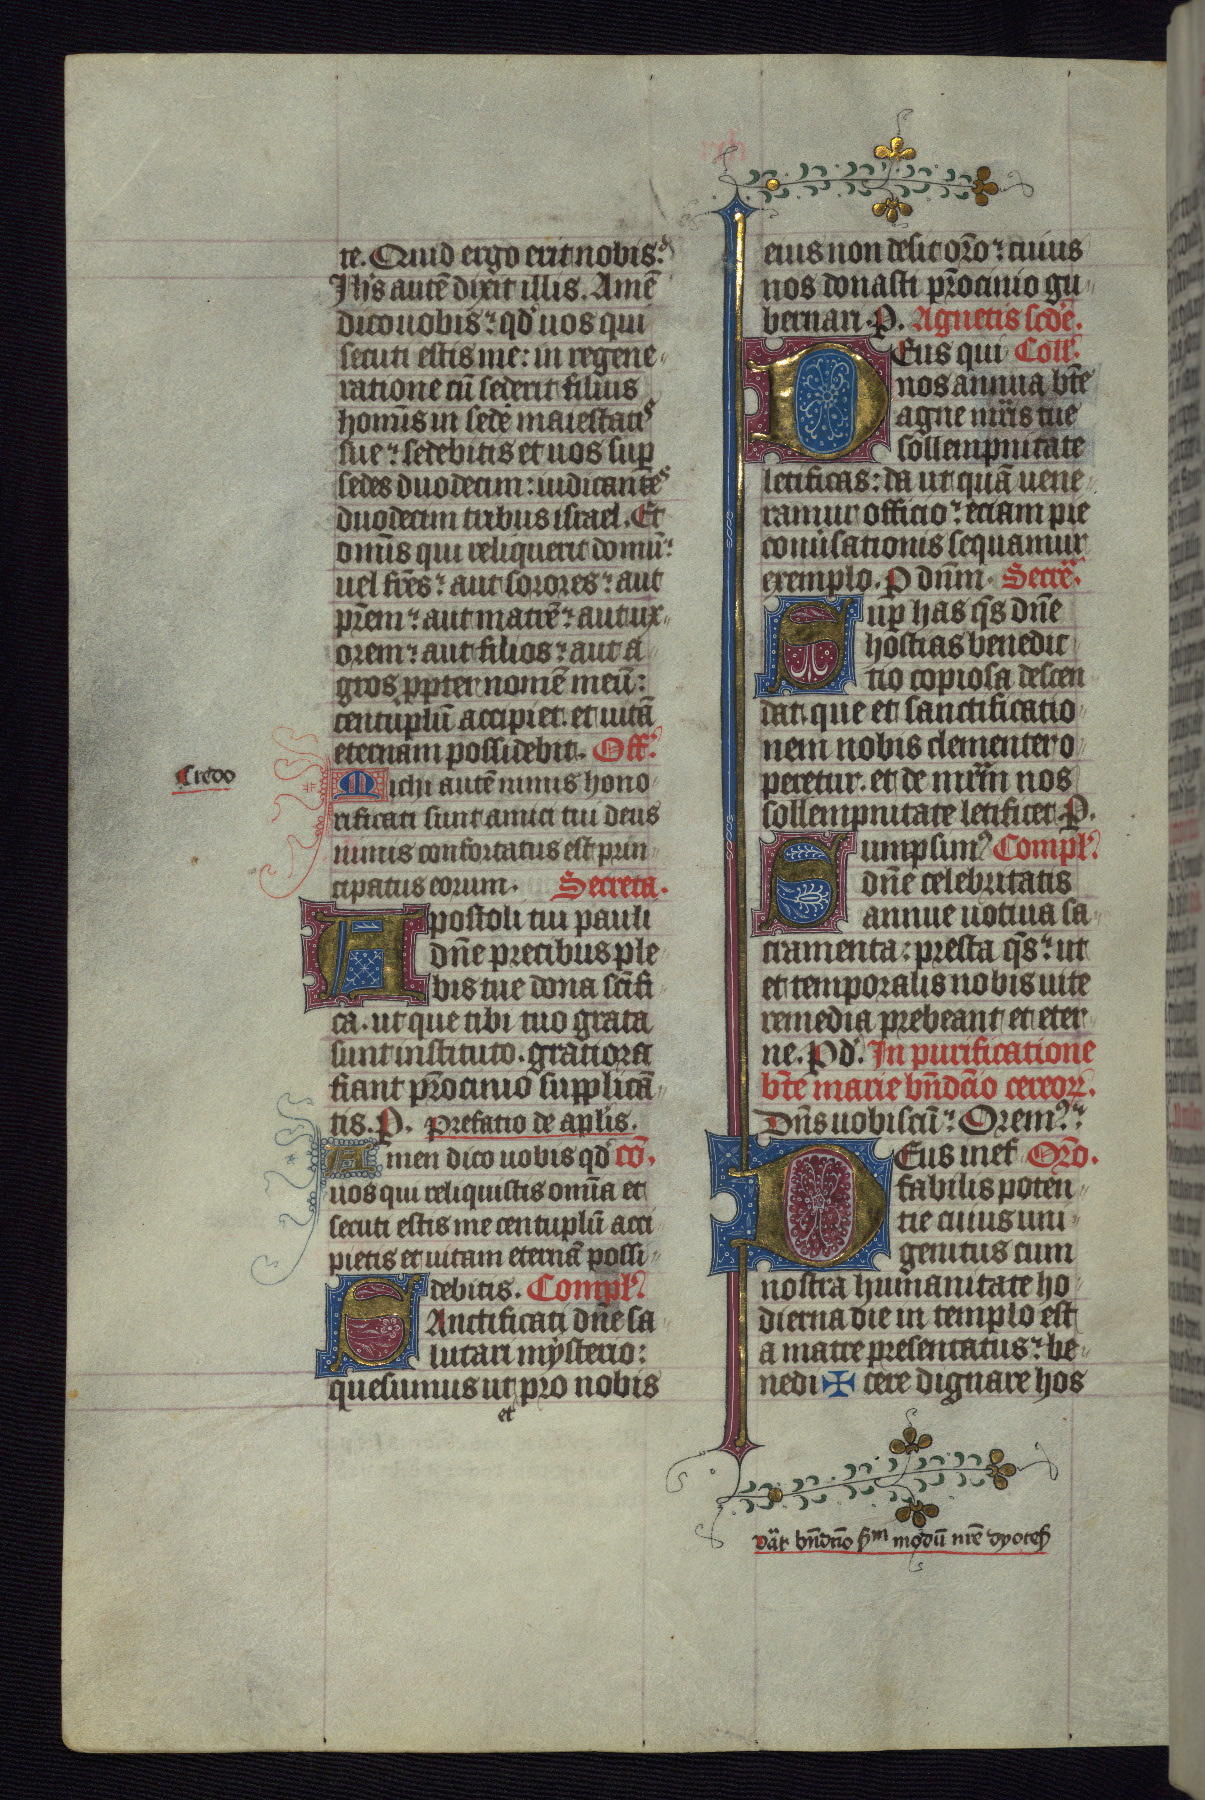 te. Quid ergo erit nobis.
Ihs autē dixit illis. Amē
dico uobis: qd uos qui
secuti estis me: in regene-
ratione cū sederit filius
homīs in sede maiestatis
sue: sedebitis et uos sup
sedes duodecim: iudicantes
duodecim tribus israel. Et
omīs qui reliquerit domū:
uel frēs: aut sorores: aut
prēm: aut matrē: aut ux-
orem: aut filios: aut a-
gros ppter nomē meū:
centuplū accipiet. et uitā
eternam possidebit. Off.
Credo
Michi autē nimis hono-
rificati sunt amici tui deus
nimis confortatus est prin-
cipatus eorum. Secreta.
Apostoli tui pauli
dnē precibus ple-
bis tue dona scifi-
ca. ut que tibi tuo grata
sunt instituto. gratiora
fiant prōcinio supplicā-
tis. P. Prefatio de aplis.
Amen dico uobis qd cō.
uos qui reliquistis omīa et
secuti estis me centuplū acci-
pietis et uitam eternā possi-
debitis. Compl.
Sanctificati dnē sa-
lutari mysterio:
quesumus ut pro nobis
et
eius non desit orō: cuius
nos donasti prōcinio gu-
bernari. P. Agnetis scdē.
Deus qui Coll.
nos annua btē
agne mr̄is tue
sollempnitate
letificas: da ut quā uene-
ramur officio: eciam pie
conuīsationis sequamur
exemplo. P dnm. Secrē.
Sup has qs dnē
hostias benedic-
tio copiosa descen-
dat. que et sanctificatio-
nem nobis clementer o-
peretur. et de mr̄m nos
sollempnitate letificet. P.
Sumpsim9 Compl.
dnē celebritatis
annue uotiua sa-
cramenta: presta qs: ut
et temporalis nobis uite
remedia prebeant et eter-
ne. P d. In purificatione
btē marie bn̄dcīo cereorꝝ.
Dns uobiscū: Orem9:
Deus inef- Orō.
fabilis poten-
tie cuius uni-
genitus cum
nostra humanitate ho-
dierna die in templo est
a matre presentatus: be-
nedi ✠ cere dignare hos
bn̄dcīo modū nrē dyoces